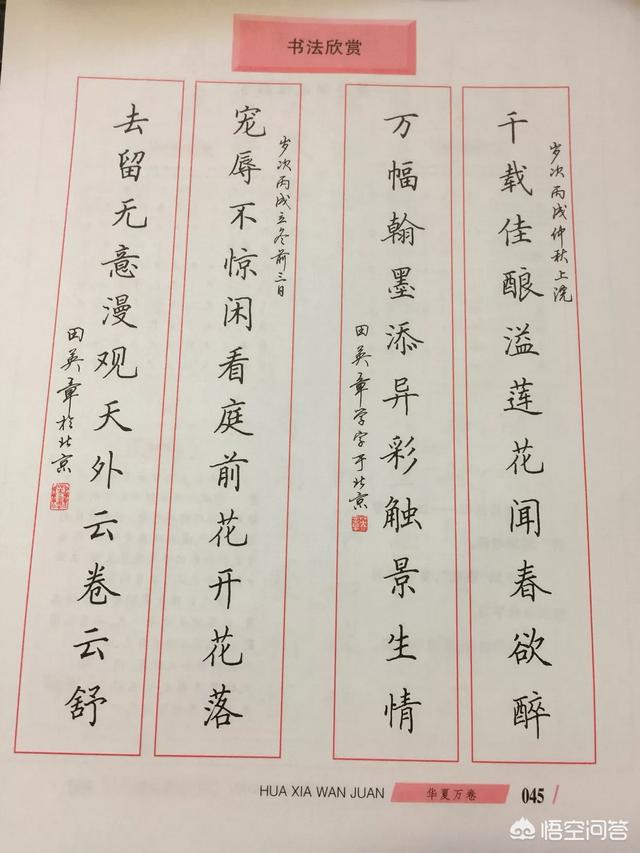 书法欣赏
岁次丙戌仲秋上浣
千载佳酿溢莲花闻春欲醉
万幅翰墨添异彩触景生情
田英章学字于北京
岁次丙戌立冬前三日
宠辱不惊闲看庭前花开花落
去留无意漫观天外云卷云舒
田英章于北京
HUA XIA WAN JUAN
华夏万卷
045
悟空问答